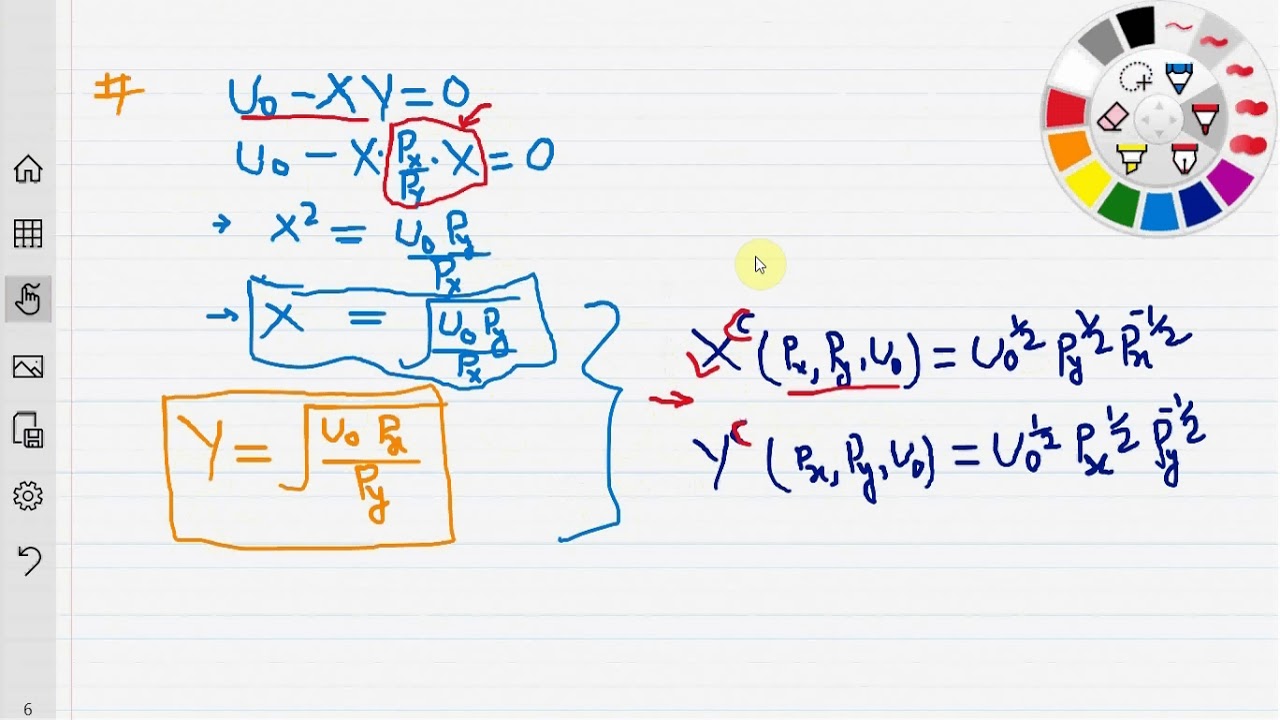 # U₀ − XY = 0
U₀ − X · Pₓ/Pᵧ · X = 0
→ X² = U₀ Pᵧ / Pₓ
→ X = √(U₀ Pᵧ / Pₓ)
Y = √(U₀ Pₓ / Pᵧ)
Xᶜ (Pₓ, Pᵧ, U₀) = U₀^½ Pᵧ^½ Pₓ^-½
→ Yᶜ (Pₓ, Pᵧ, U₀) = U₀^½ Pₓ^½ Pᵧ^-½
6